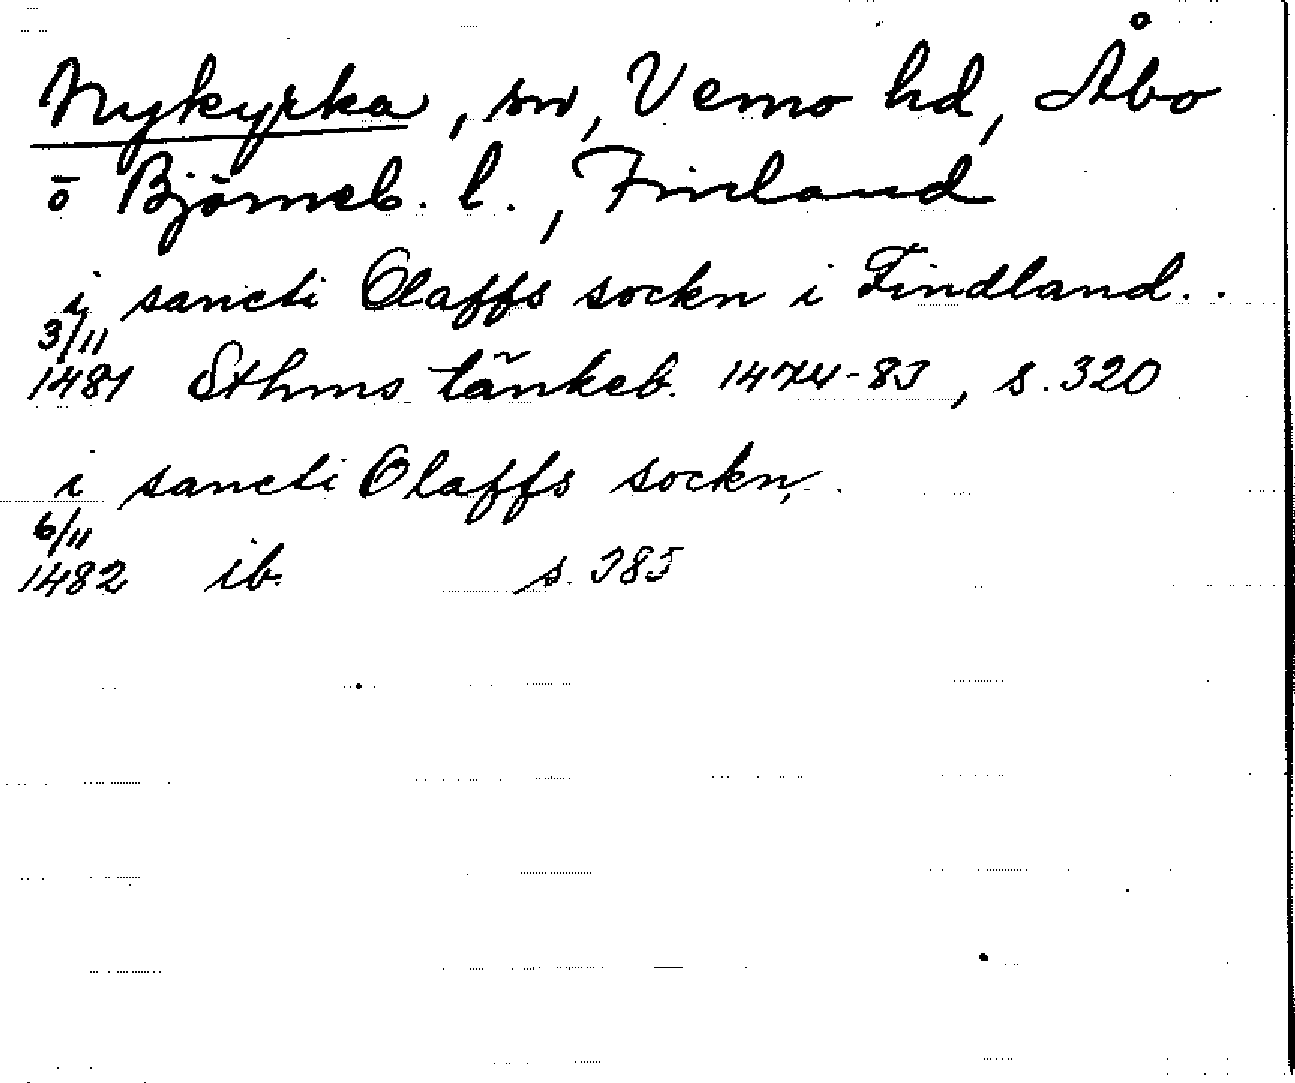 Nykyrka, sn, Vemo hd, Åbo
o Björneb. l., Finland
i sancti Olaffs sockn i Findland..
3/11
1481 Sthms tänkeb. 1474-83, s. 320
i sancti Olaffs sockn,.
6/11
1482 ib. s. 385